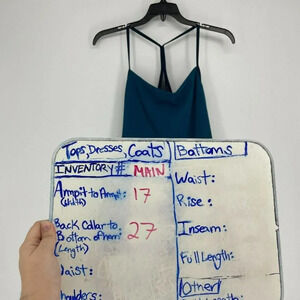 Tops, Dresses, Coats
INVENTORY # MAIN
Armpit to Armpit: 17
(Width)
Back Collar to
Bottom of hem: 27
(Length)
Waist:
Shoulders:
Bottoms
Waist:
Rise:
Inseam:
Full Length:
Other